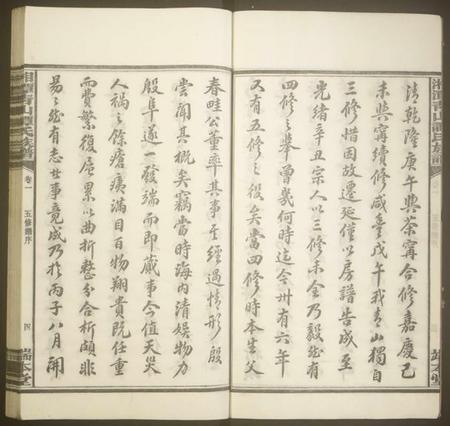 清乾隆庚午與茶甯合修嘉慶己
未與甯續修咸豐戊午我青山獨自
三修惜因故遷延僅以房譜告成至
光緒辛丑宗人以三修未全乃毅然有
四修之舉曾幾何時迄今卅有六年
又有五修之役矣當四修時本生父
春畦公董率其事至經過情形殷
嘗聞其概矣竊當時海內清娛物力
殷阜遂一發端而即蕆事今值天災
人禍之餘瘡痍滿目百物翔貴既任重
而費繁復層累以曲折整分合析頗非
易之然有志世事竟成乃於丙子八月開
卷一
五修譜序
四
端本堂